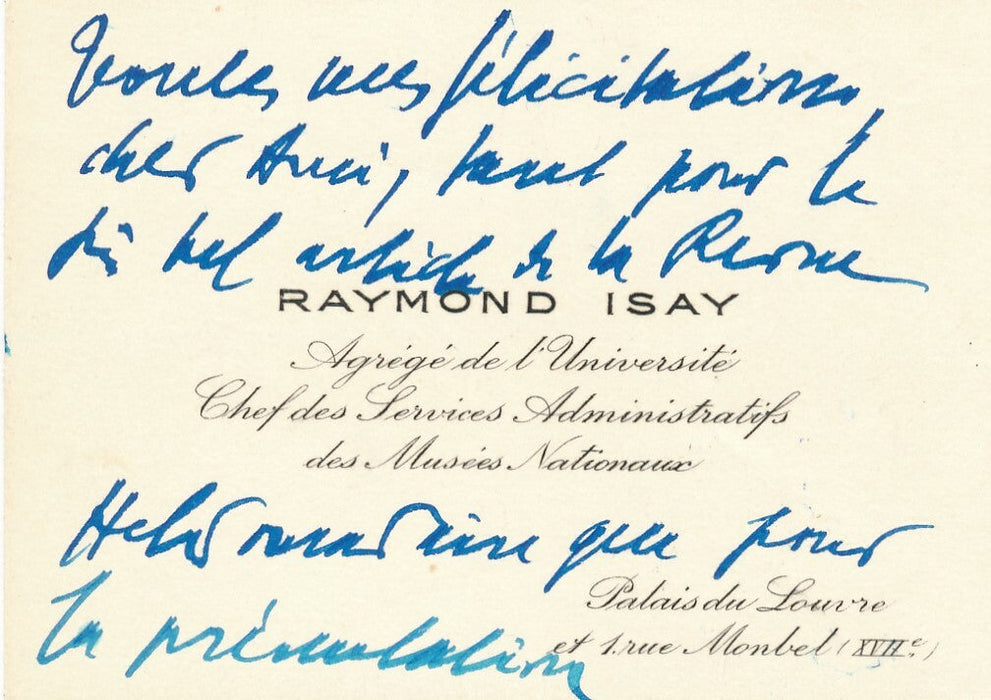 Toutes mes félicitations,
cher Ami, tant pour le
si bel article de la Revue
RAYMOND ISAY
Agrégé de l'Université
Chef des Services Administratifs
des Musées Nationaux
Hebdomadaire que pour
Palais du Louvre
et 1. rue Monbel (XVIIe.)
la présentation